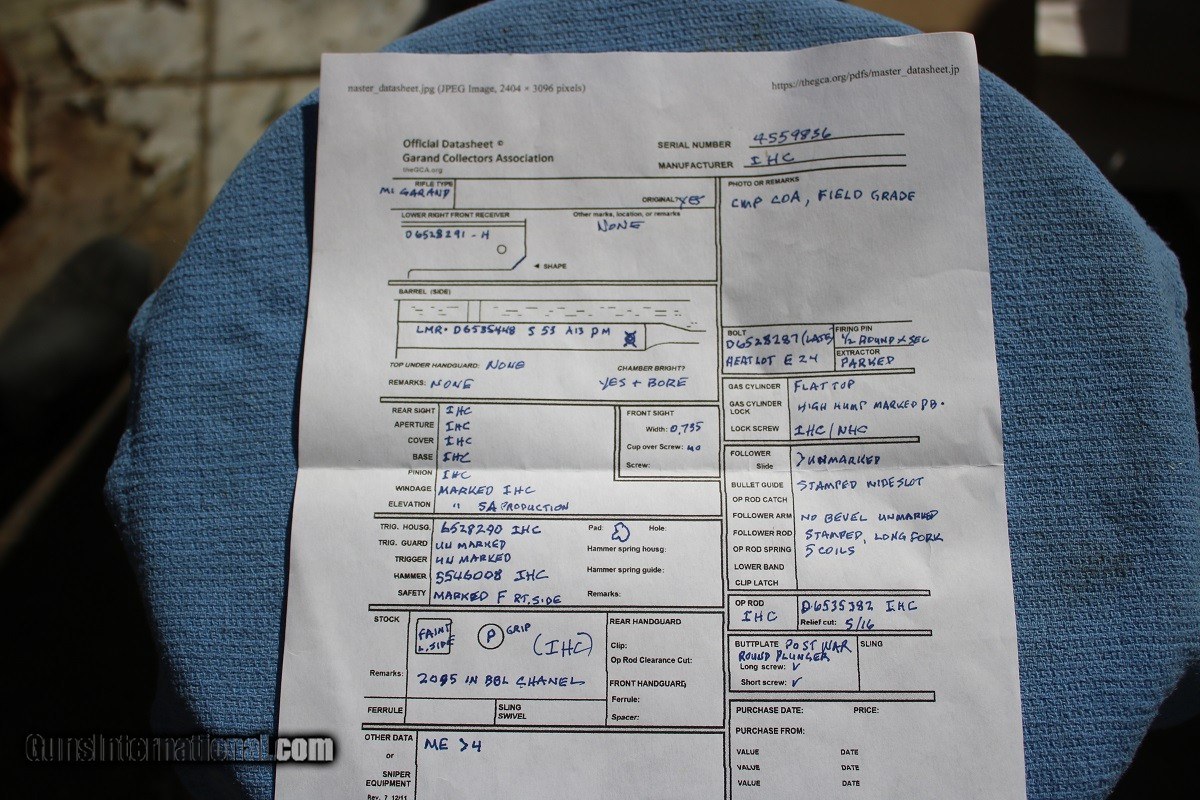 master_datasheet.jpg (JPEG Image, 2404 × 3096 pixels)
https://thegca.org/pdfs/master_datasheet.jp
Official Datasheet ©
Garand Collectors Association
theGCA.org
SERIAL NUMBER 4559836
MANUFACTURER IHC
RIFLE TYPE
M1 GARAND
ORIGINAL? YES
LOWER RIGHT FRONT RECEIVER
D6528291-H
SHAPE
Other marks, location, or remarks
NONE
PHOTO OR REMARKS
CMP COA, FIELD GRADE
BARREL (SIDE)
LMR· D6535448 5 53 A13 P M
TOP UNDER HANDGUARD: NONE
CHAMBER BRIGHT?
REMARKS: NONE
YES + BORE
BOLT
D6528287 (LATE)
HEAT LOT E 24
FIRING PIN
1/2 ROUND
EXTRACTOR
PARKED
REAR SIGHT IHC
APERTURE IHC
COVER IHC
BASE IHC
PINION IHC
WINDAGE MARKED IHC
ELEVATION " 5A PRODUCTION
FRONT SIGHT
Width: 0.755
Cup over Screw: NO
Screw:
GAS CYLINDER FLAT TOP
GAS CYLINDER LOCK HIGH HUMP MARKED PB.
LOCK SCREW IHC/NHC
FOLLOWER
Slide
UNMARKED
BULLET GUIDE STAMPED WIDE SLOT
OP ROD CATCH
FOLLOWER ARM NO BEVEL UNMARKED
FOLLOWER ROD STAMPED, LONG FORK
OP ROD SPRING 5 COILS
LOWER BAND
CLIP LATCH
TRIG. HOUSG. 6528290 IHC
TRIG. GUARD UNMARKED
TRIGGER UNMARKED
HAMMER 5546008 IHC
SAFETY MARKED F RT. SIDE
Pad:
Hole:
Hammer spring housg:
Hammer spring guide:
Remarks:
OP ROD
IHC
D6535382 IHC
Relief cut: 5/16
STOCK
FAINT
L. SIDE
P GRIP
(IHC)
Remarks: 2095 IN BBL CHANEL
FERRULE
SLING
SWIVEL
REAR HANDGUARD
Clip:
Op Rod Clearance Cut:
FRONT HANDGUARD
Ferrule:
Spacer:
BUTTPLATE POST WAR
ROUND PLUNGER
Long screw: ✓
Short screw: ✓
SLING
OTHER DATA
or
SNIPER
EQUIPMENT
Rev. 7 12/11
ME >4
PURCHASE DATE:
PRICE:
PURCHASE FROM:
VALUE DATE
VALUE DATE
VALUE DATE
GunsInternational.com